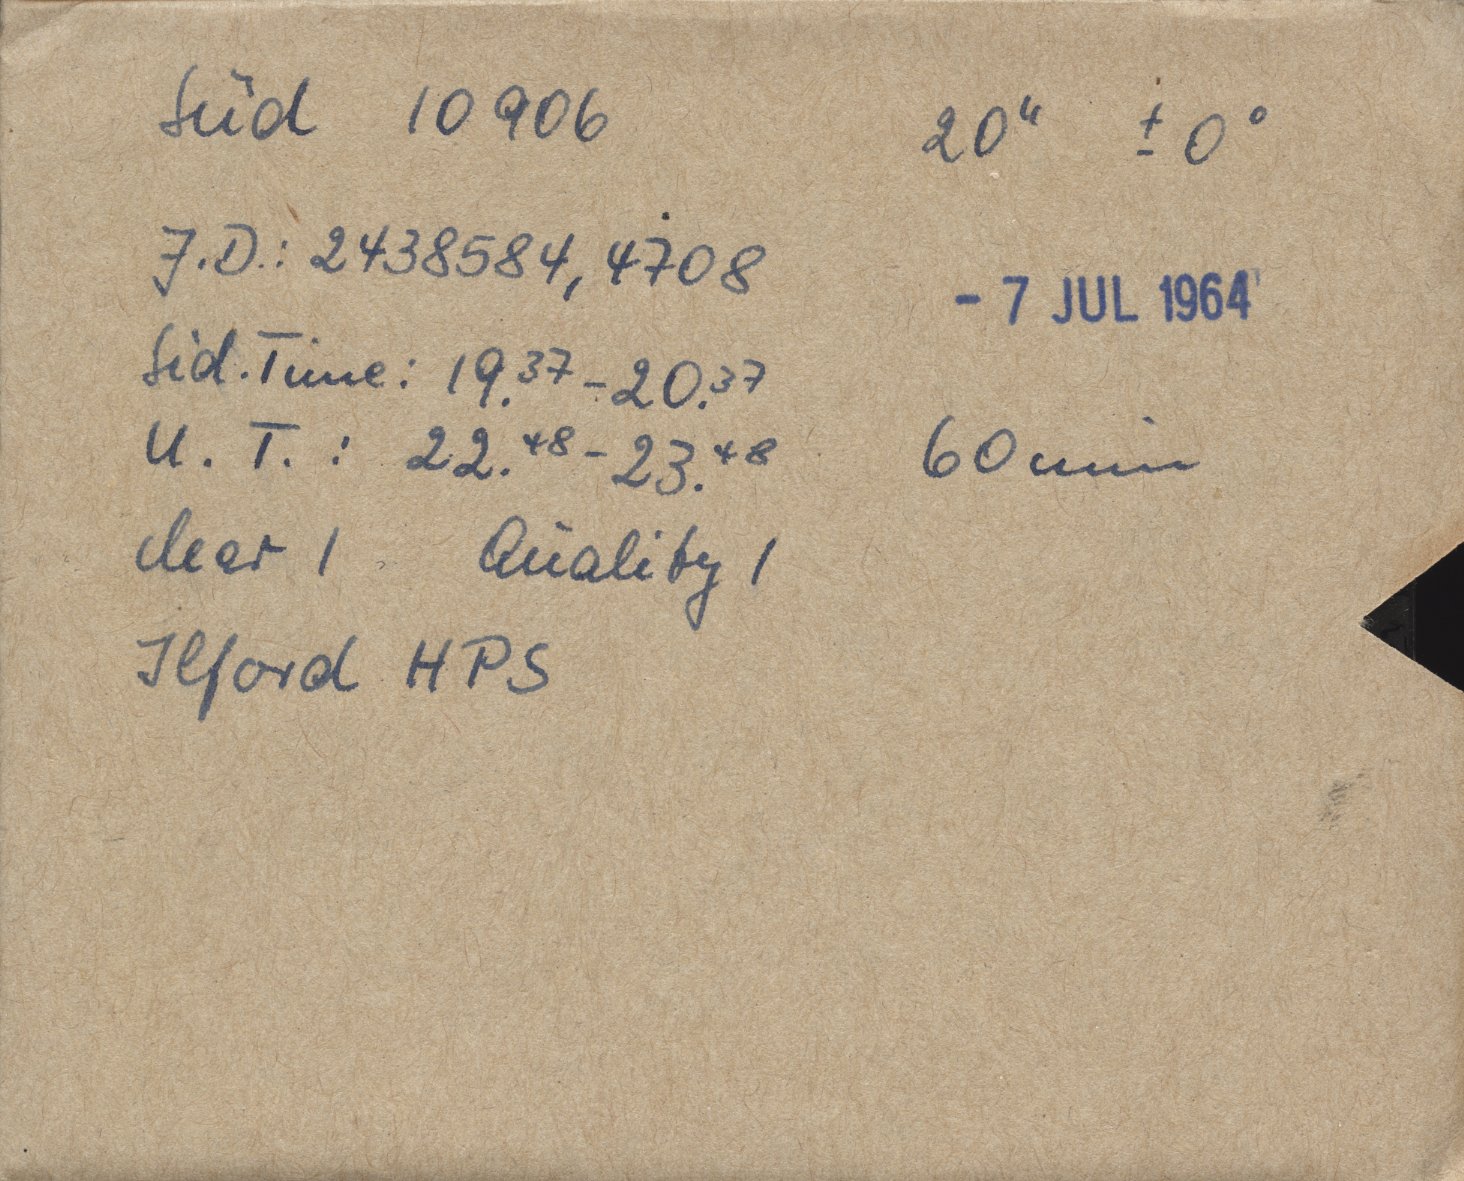 Süd 10906 20ʰ ± 0°
J.D.: 2438584,4708
- 7 JUL 1964
Sid. Time: 19.37 - 20.37
U. T. : 22.48 - 23.48 60 min
clear 1 Quality 1
Ilford HPS